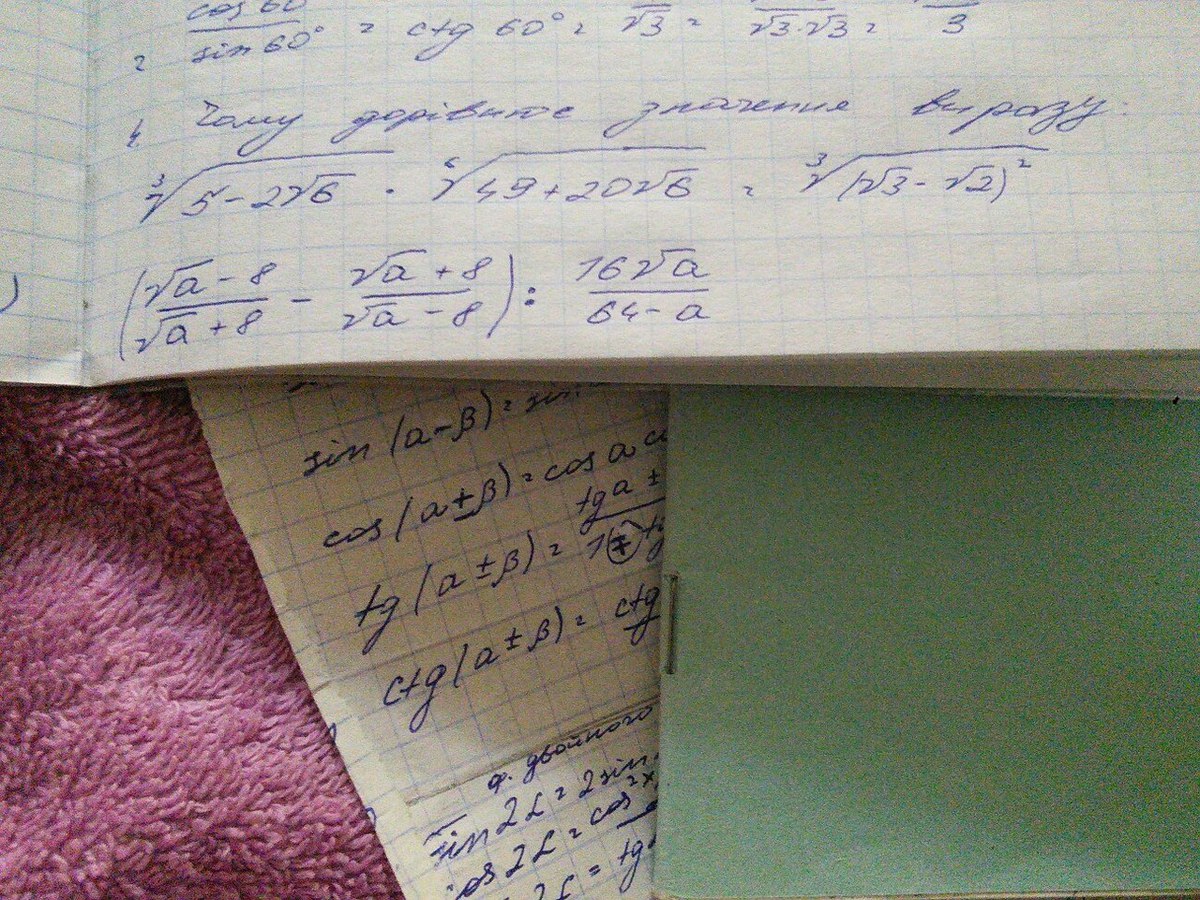 = cos 60° / sin 60° = ctg 60° = /√3 = /√3·√3 = /3
4. Чому дорівнює значення виразу:
∛(5-2√6) · ⁶√(49+20√6) = ∛((√3-√2)²
) ((√a-8)/(√a+8) - (√a+8)/(√a-8)) : (16√a)/(64-a)
sin(a-β) = sin
cos(a±β) = cos a c
tg(a±β) = (tg a ±)/(1∓tg
ctg(a±β) = ctg
ф. двойного
sin 2L = 2 sin
cos 2L = cos²
2L = tg